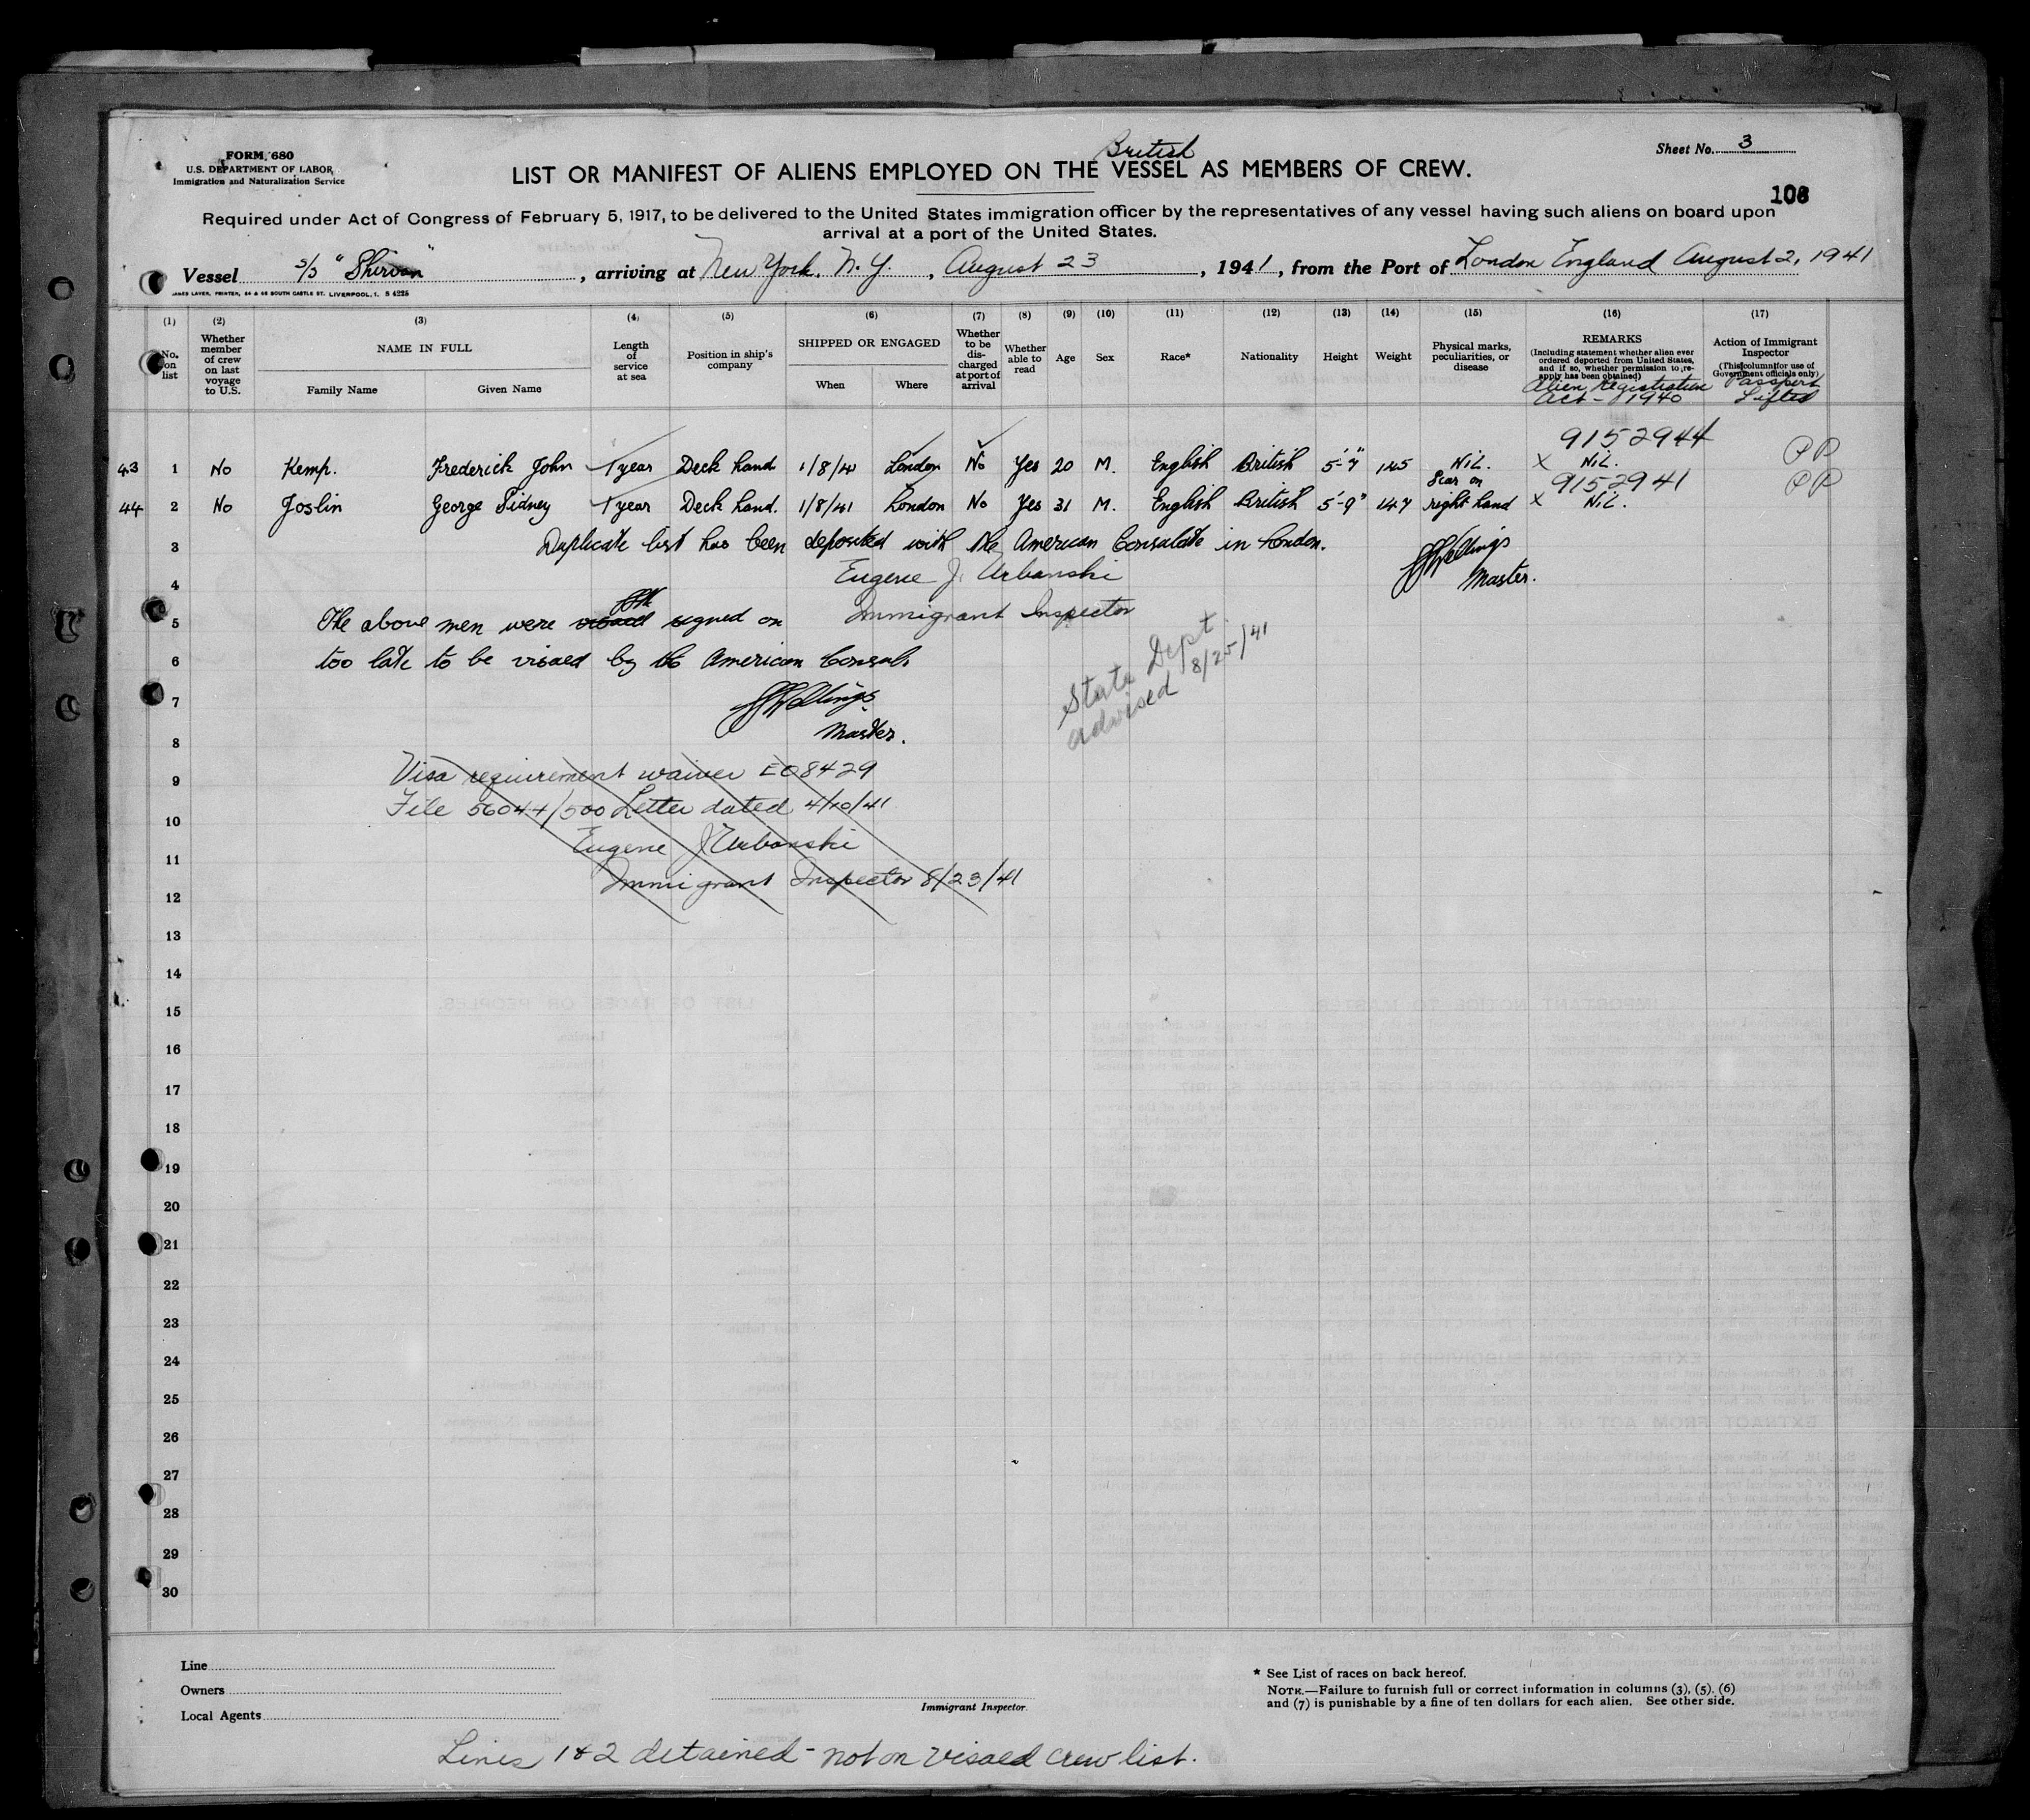 FORM, 680
U.S. DEPARTMENT OF LABOR,
Immigration and Naturalization Service
British
LIST OR MANIFEST OF ALIENS EMPLOYED ON THE VESSEL AS MEMBERS OF CREW.
Sheet No. 3
106
Required under Act of Congress of February 5, 1917, to be delivered to the United States immigration officer by the representatives of any vessel having such aliens on board upon
arrival at a port of the United States.
Vessel S/S "Shirvan", arriving at New York, N.Y., August 23, 1941, from the Port of London England August 2, 1941
JAMES LAVER, PRINTER, 64 & 66 SOUTH CASTLE ST. LIVERPOOL, 1. S 4225
(1) (2) (3) (4) (5) (6) (7) (8) (9) (10) (11) (12) (13) (14) (15) (16) (17)
No. on list
Whether member of crew on last voyage to U.S.
NAME IN FULL
Family Name Given Name
Length of service at sea
Position in ship's company
SHIPPED OR ENGAGED
When Where
Whether to be discharged at port of arrival
Whether able to read
Age
Sex
Race*
Nationality
Height
Weight
Physical marks, peculiarities, or disease
REMARKS
(Including statement whether alien ever ordered deported from United States, and if so, whether permission to re-apply has been obtained)
Alien Registration
Act - 1940
Action of Immigrant Inspector
(This column for use of Government officials only)
Passport
Lifted
9152944
43 1 No Kemp. Frederick John 1 year Deck hand 1/8/41 London No Yes 20 M. English British 5'-7" 145 NiL. X NiL. PP
Scar on 9152941 PP
44 2 No Joslin George Sidney 1 year Deck hand. 1/8/41 London No Yes 31 M. English British 5'-9" 147 right hand X NiL.
3 Duplicate list has been deposited with the American Consulate in London.
4 Eugene J. Urbanski Master.
5 The above men were visaed signed on Immigrant Inspector
6 too late to be visaed by the American Consul.
State Dept
advised 8/25/41
7
8 Master.
9 Visa requirement waiver EO8429
10 File 56044/500 Letter dated 4/10/41
11 Eugene J Urbanski
12 Immigrant Inspector 8/23/41
13
14
15
16
17
18
19
20
21
22
23
24
25
26
27
28
29
30
Line
Owners
Local Agents
Immigrant Inspector
* See List of races on back hereof.
NOTE.—Failure to furnish full or correct information in columns (3), (5), (6)
and (7) is punishable by a fine of ten dollars for each alien. See other side.
Lines 1 & 2 detained - not on visaed crew list.